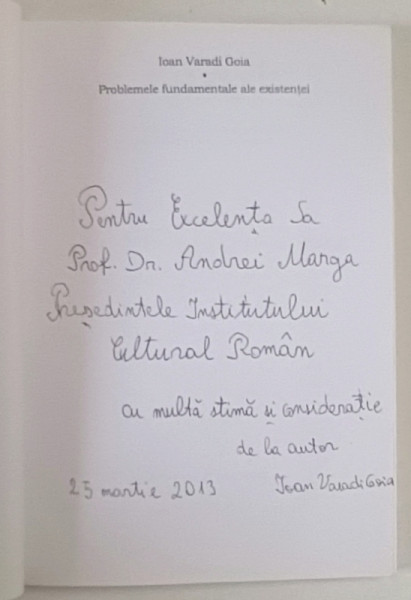 Ioan Varadi Goia
•
Problemele fundamentale ale existenței
Pentru Excelența Sa
Prof. Dr. Andrei Marga
Președintele Institutului
Cultural Român
cu multă stimă și considerație
de la autor
25 martie 2013 Ioan Varadi Goia